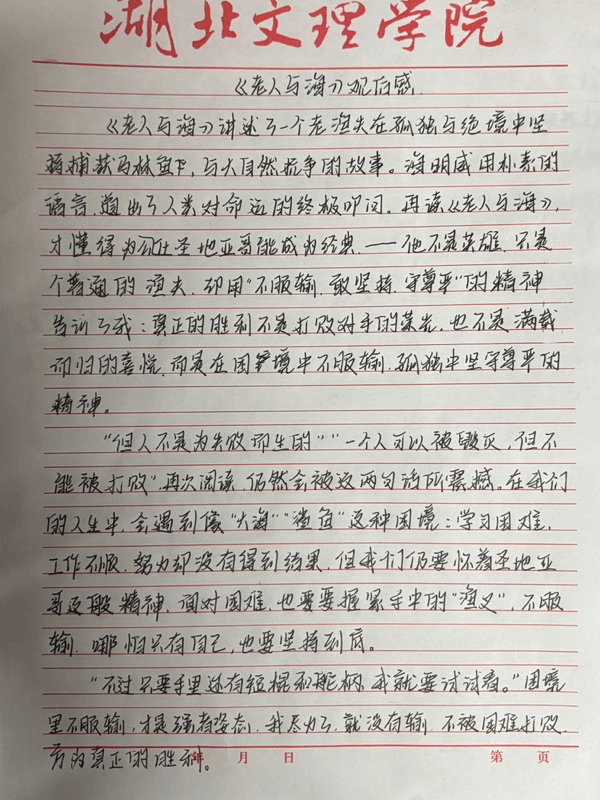 湖北文理学院
《老人与海》观后感
《老人与海》讲述了一个老渔夫在孤独与绝境中坚
持捕获马林鱼，与大自然抗争的故事。海明威用朴素的
语言，道出了人类对命运的终极叩问。再读《老人与海》，
才懂得为何圣地亚哥能成为经典——他不是英雄，只是
个普通的渔夫，却用“不服输，敢坚持，守尊严”的精神
告诉了我：真正的胜利不是打败对手的荣光，也不是满载
而归的喜悦，而是在困境中不服输，孤独中坚守尊严的
精神。
“但人不是为失败而生的”“一个人可以被毁灭，但不
能被打败”再次阅读，仍然会被这两句话所震撼。在我们
的人生中，会遇到像“大海”“鲨鱼”这种困境：学习困难，
工作不顺，努力却没有得到结果，但我们仍要怀着圣地亚
哥这般精神，面对困难，也要要握紧手中的“渔叉”，不服
输，哪怕只有自己，也要坚持到底。
“不过只要手里还有短棍和舵柄，我就要试试看。”困境
里不服输，才是强者姿态，我尽力了，就没有输，不被困难打败，
方为真正的胜利。
年 月 日 第 页